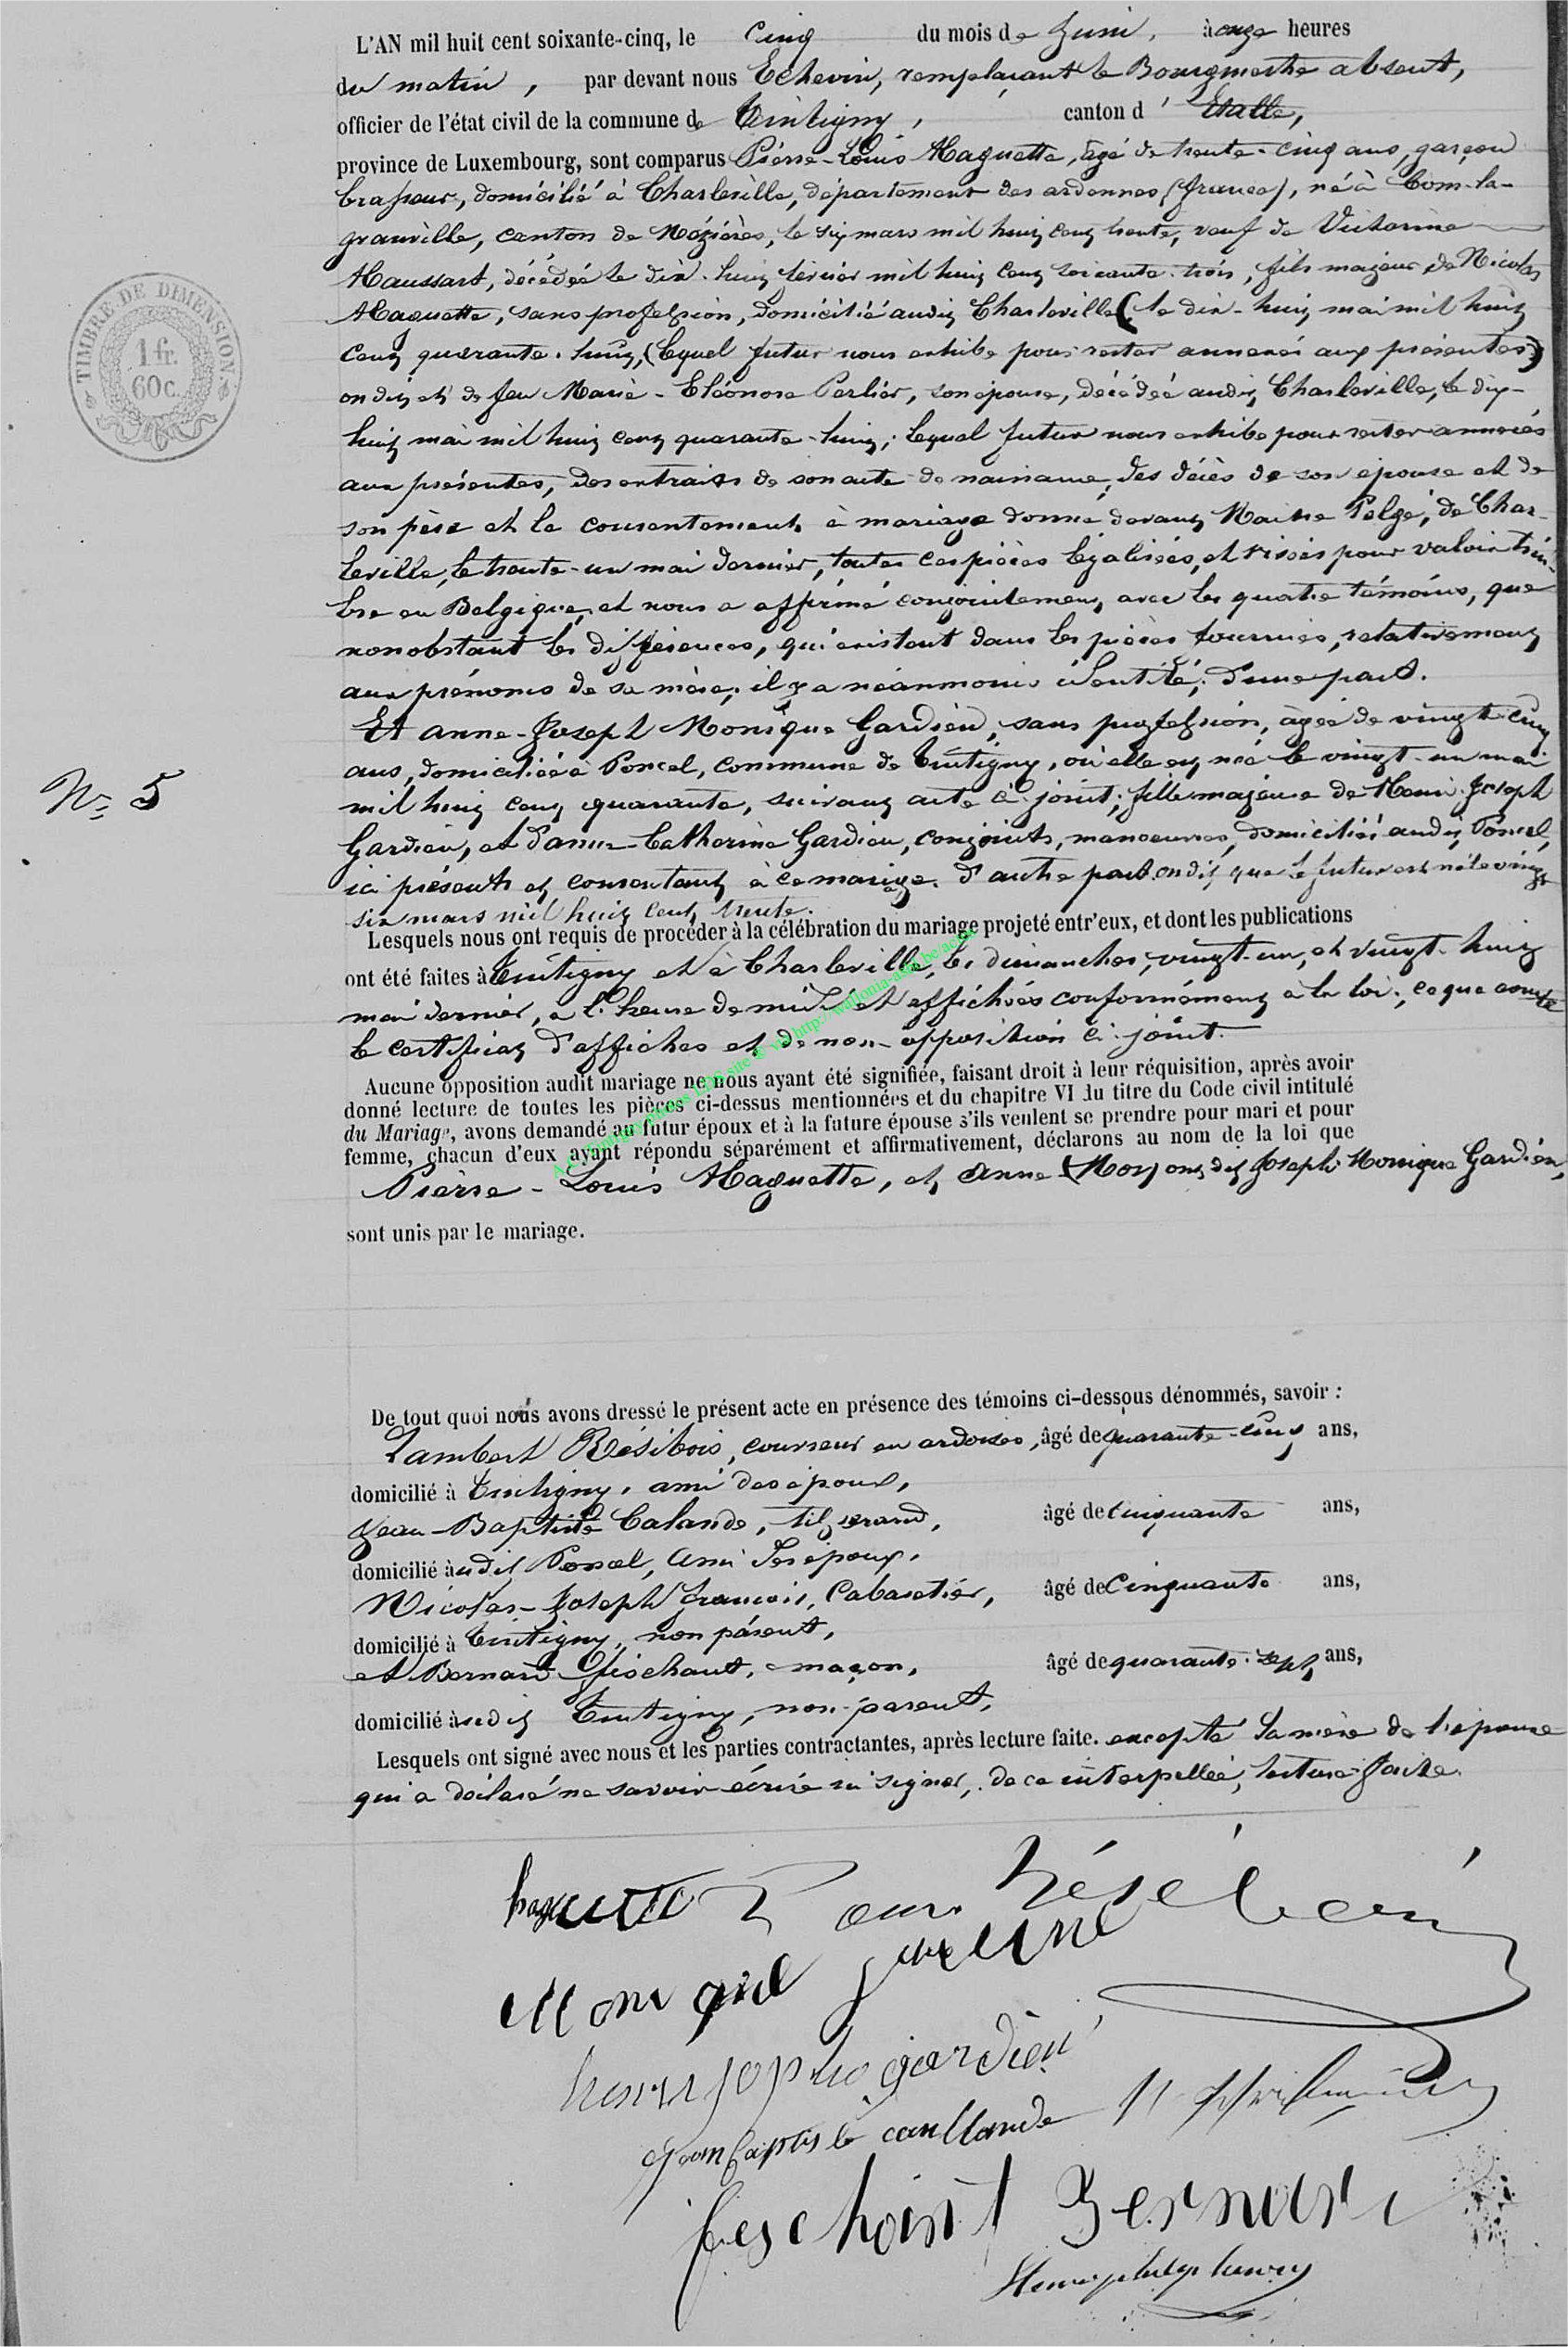 L'AN mil huit cent soixante-cinq, le cinq du mois de Juin, à onze heures
du matin, par devant nous Echevin, remplaçant le Bourgmestre absent,
officier de l'état civil de la commune de Tintigny, canton d'Etalle,
province de Luxembourg, sont comparus Pierre-Louis Haguette, âgé de trente-cinq ans, garçon
brasseur, domicilié à Charleville, département des ardennes (france), né à Tom-la-
granville, canton de Mézières, le six mars mil huit cent trente, veuf de Victorine
Haussart, décédée le dix-huit février mil huit cent soixante-trois, fils majeur de Nicolas
Haguette, sans profession, domicilié audit Charleville (le dix-huit mai mil huit
cent quarante-huit, (lequel futur nous exhibe pour rester annexés aux présentes)
on dit et de feu Marie-Eléonore Perlier, son épouse, décédée audit Charleville, le dix-
huit mai mil huit cent quarante-huit; lequel futur nous exhibe pour rester annexés
aux présentes, des extraits de son acte de naissance, des décès de son épouse et de
son père et le consentement à mariage donné devant Maitre Pelgé, de Char-
leville, le trente-un mai dernier, toutes ces pièces légalisées, et visées pour valoir tim-
bre en Belgique, et nous a affirmé conjointement, avec les quatre témoins, que
nonobstant les différences, qui existent dans les pièces fournies, relativement
aux prénoms de sa mère, il y a néanmoins identité, d'une part.
Et anne-Joseph Monique Gardien, sans profession, âgée de vingt-cinq
ans, domiciliée à Poncel, commune de Tintigny, où elle est née le vingt-un mai
mil huit cent quarante, suivant acte ci-joint, fille majeure de Henri-Joseph
Gardien, et d'anne-Catherine Gardien, conjoints, manoeuvres, domiciliés audit Poncel,
ici présents et consentant à ce mariage. d'autre part. on dit que le futur est né le vingt
six mars mil huit cent trente.
N° 5
Lesquels nous ont requis de procéder à la célébration du mariage projeté entr'eux, et dont les publications
ont été faites à Tintigny et à Charleville, les dimanches, vingt-un, et vingt-huit
mai dernier, à l'heure de midi et affichées conformément à la loi; ce que conste
le certificat d'affiches et de non-opposition ci-joint.
Aucune opposition audit mariage ne nous ayant été signifiée, faisant droit à leur réquisition, après avoir
donné lecture de toutes les pièces ci-dessus mentionnées et du chapitre VI du titre du Code civil intitulé
du Mariage, avons demandé au futur époux et à la future épouse s'ils veulent se prendre pour mari et pour
femme, chacun d'eux ayant répondu séparément et affirmativement, déclarons au nom de la loi que
Pierre-Louis Haguette, et Anne-(Mon) ons dit Joseph-Monique Gardien,
sont unis par le mariage.
De tout quoi nous avons dressé le présent acte en présence des témoins ci-dessous dénommés, savoir :
Lambert Résibois, couvreur en ardoises, âgé de quarante-cinq ans,
domicilié à Tintigny, ami des époux,
Jean-Baptiste Calande, tisserand, âgé de cinquante ans,
domicilié audit Poncel, ami des époux,
Nicolas-Joseph françois, Cabaretier, âgé de Cinquante ans,
domicilié à Tintigny, non parent,
et Bernard feschaut, maçon, âgé de quarante-sept ans,
domicilié audit Tintigny, non-parent,
Lesquels ont signé avec nous et les parties contractantes, après lecture faite. excepté la mère de l'épouse
qui a déclaré ne savoir écrire ni signer, de ce interpellée, lecture faite.
Monique
henri joseph gardien
jean baptiste caullande
feschoint Bernard
TIMBRE DE DIMENSION
1 fr.
60c.